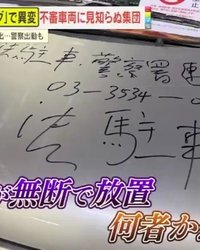 プ」で異変 不審車両に見知らぬ集団
北…警察出動も
法駐車 警察署連
03-3534-0
法駐車
が無断で放置
何者か